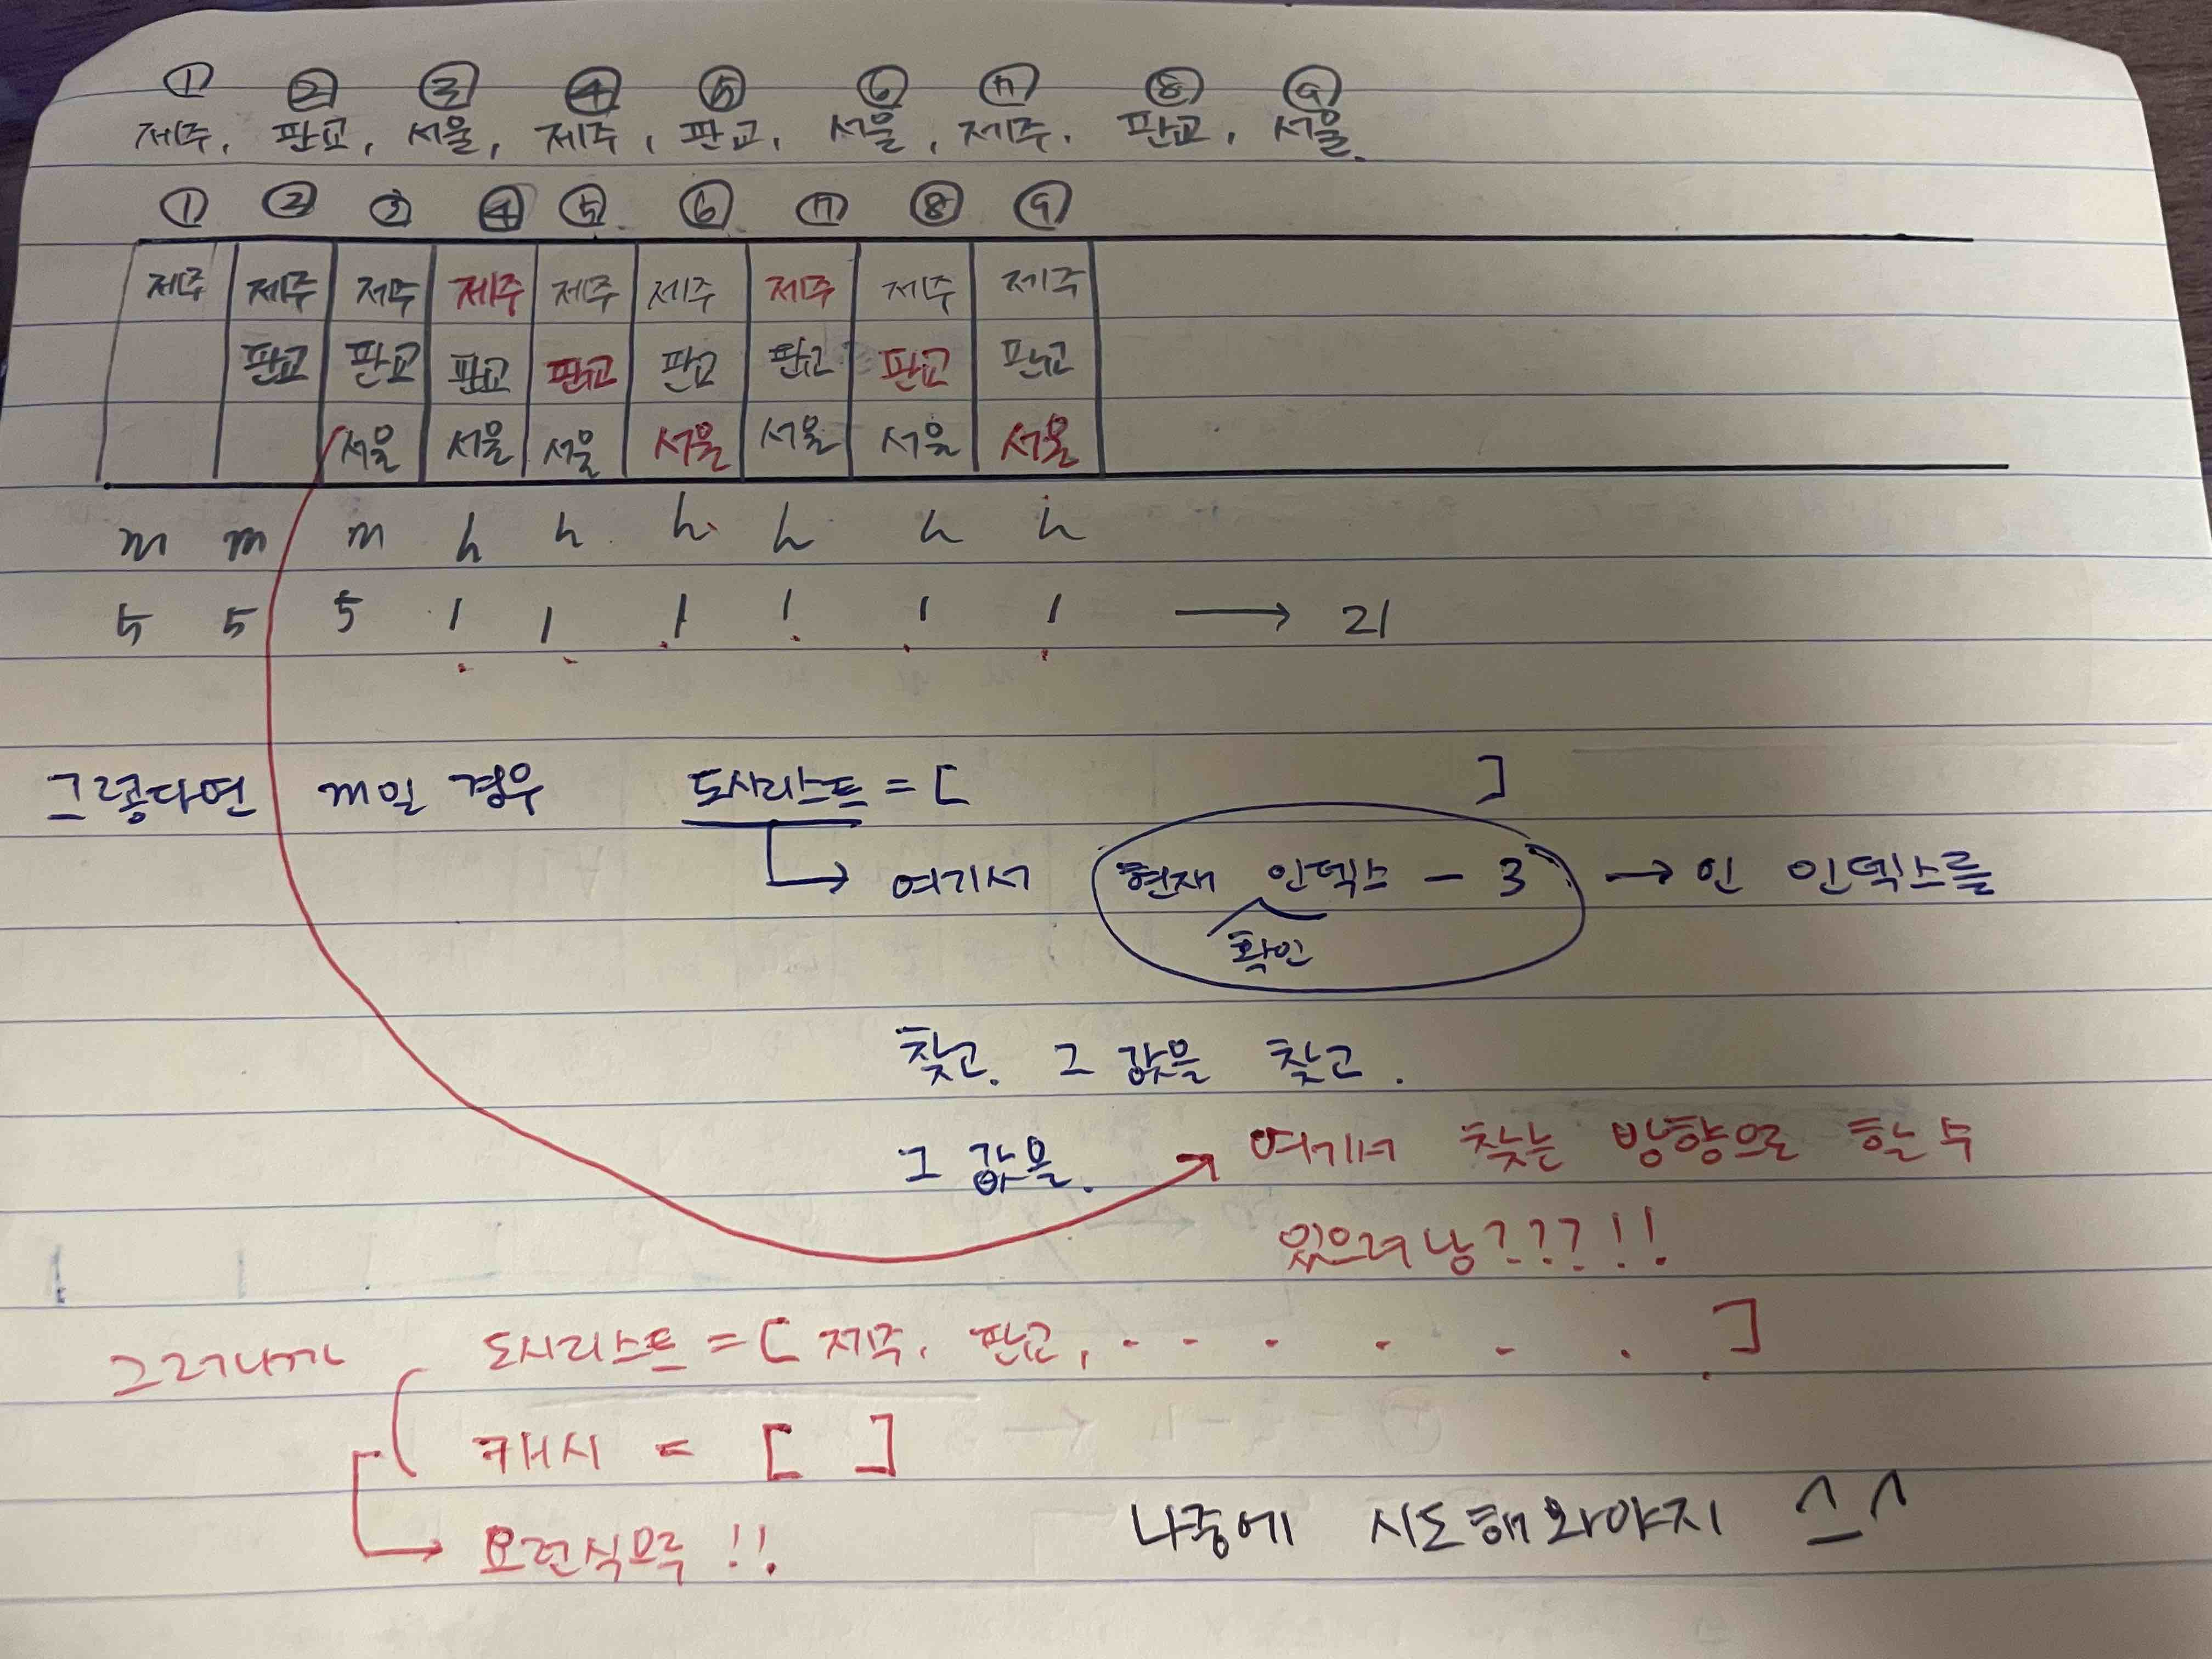 ① ② ③ ④ ⑤ ⑥ ⑦ ⑧ ⑨
제주, 판교, 서울, 제주, 판교, 서울, 제주, 판교, 서울.
① ② ③ ④ ⑤ ⑥ ⑦ ⑧ ⑨
제주 제주 제주 제주 제주 제주 제주 제주 제주
판교 판교 판교 판교 판교 판교 판교 판교
서울 서울 서울 서울 서울 서울 서울
m m m h h h h h h
5 5 5 1 1 1 1 1 1 → 21
그렇다면 m일 경우 도시리스트 = [ ]
→ 여기서 현재 인덱스 - 3 → 인 인덱스를
확인
찾고. 그 값을 찾고.
그 값을. → 여기서 찾는 방향으로 할 수
있으려낭???!!
그러니까 도시리스트 = [제주, 판교, . . . . . . . ]
캐시 = [ ]
→ 요런식으루 !!
나중에 시도해와야지 ^_^